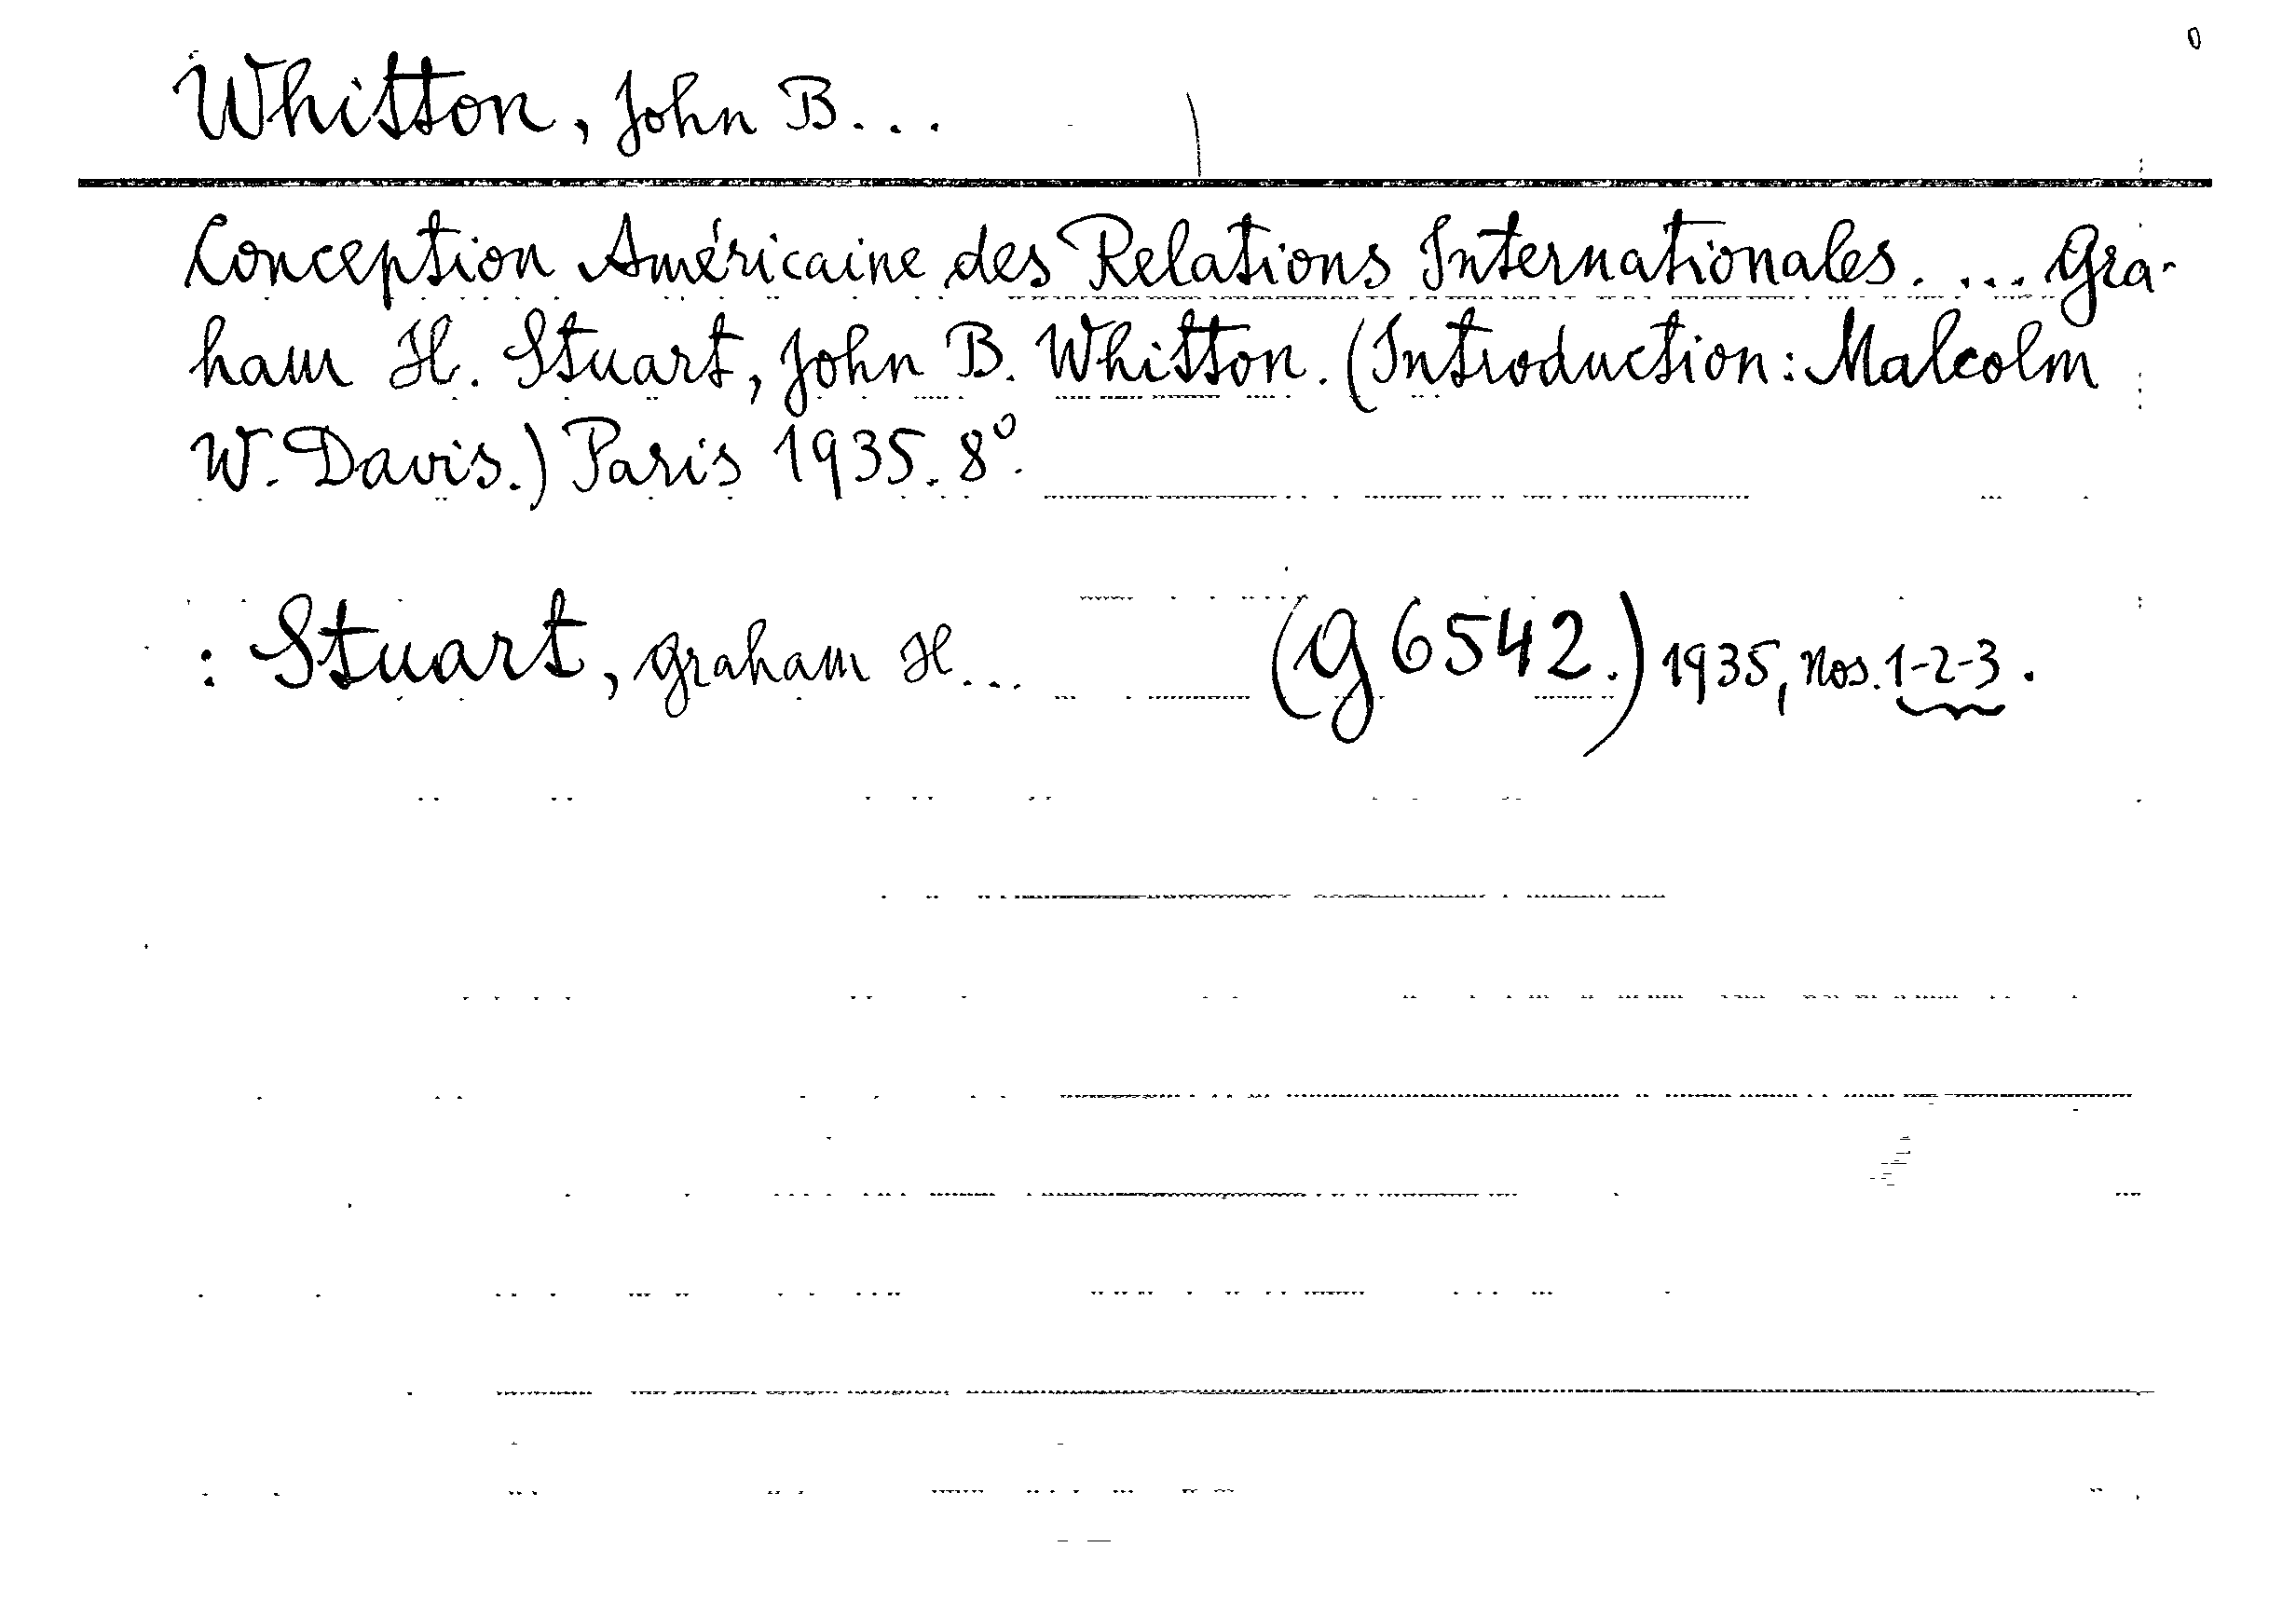 0
Whitton, John B...
Conception Américaine des Relations Internationales. ... Gra-
ham H. Stuart, John B. Whitton. (Introduction: Malcolm
W. Davis.) Paris 1935. 8º.
: Stuart, Graham H... (G 6542.) 1935, Nos. 1-2-3.